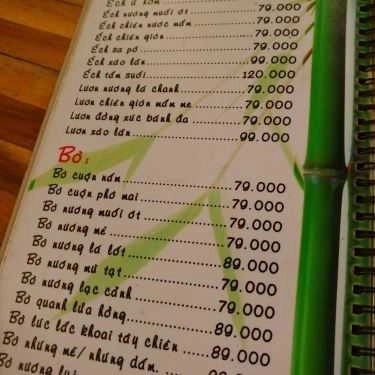 Ếch ủ rơm
Ếch nướng muối ớt 79.000
Ếch chiên nước mắm 79.000
Ếch chiên giòn 79.000
Ếch sa pò 79.000
Ếch xào lăn 99.000
Ếch tắm suối 120.000
Lươn nướng lá chanh 79.000
Lươn chiên giòn mắm me 79.000
Lươn đồng xúc bánh đa 79.000
Lươn xào lăn 99.000
Bò:
Bò cuộn nấm 79.000
Bò cuộn phô mai 79.000
Bò nướng muối ớt 79.000
Bò nướng mẻ 79.000
Bò nướng lá lốt 89.000
Bò nướng mù tạt 79.000
Bò nướng lạc cảnh 79.000
Bò quanh lửa hồng 89.000
Bò lúc lắc khoai tây chiên 89.000
Bò nhúng mẻ/ nhúng dấm.
Bò nướng